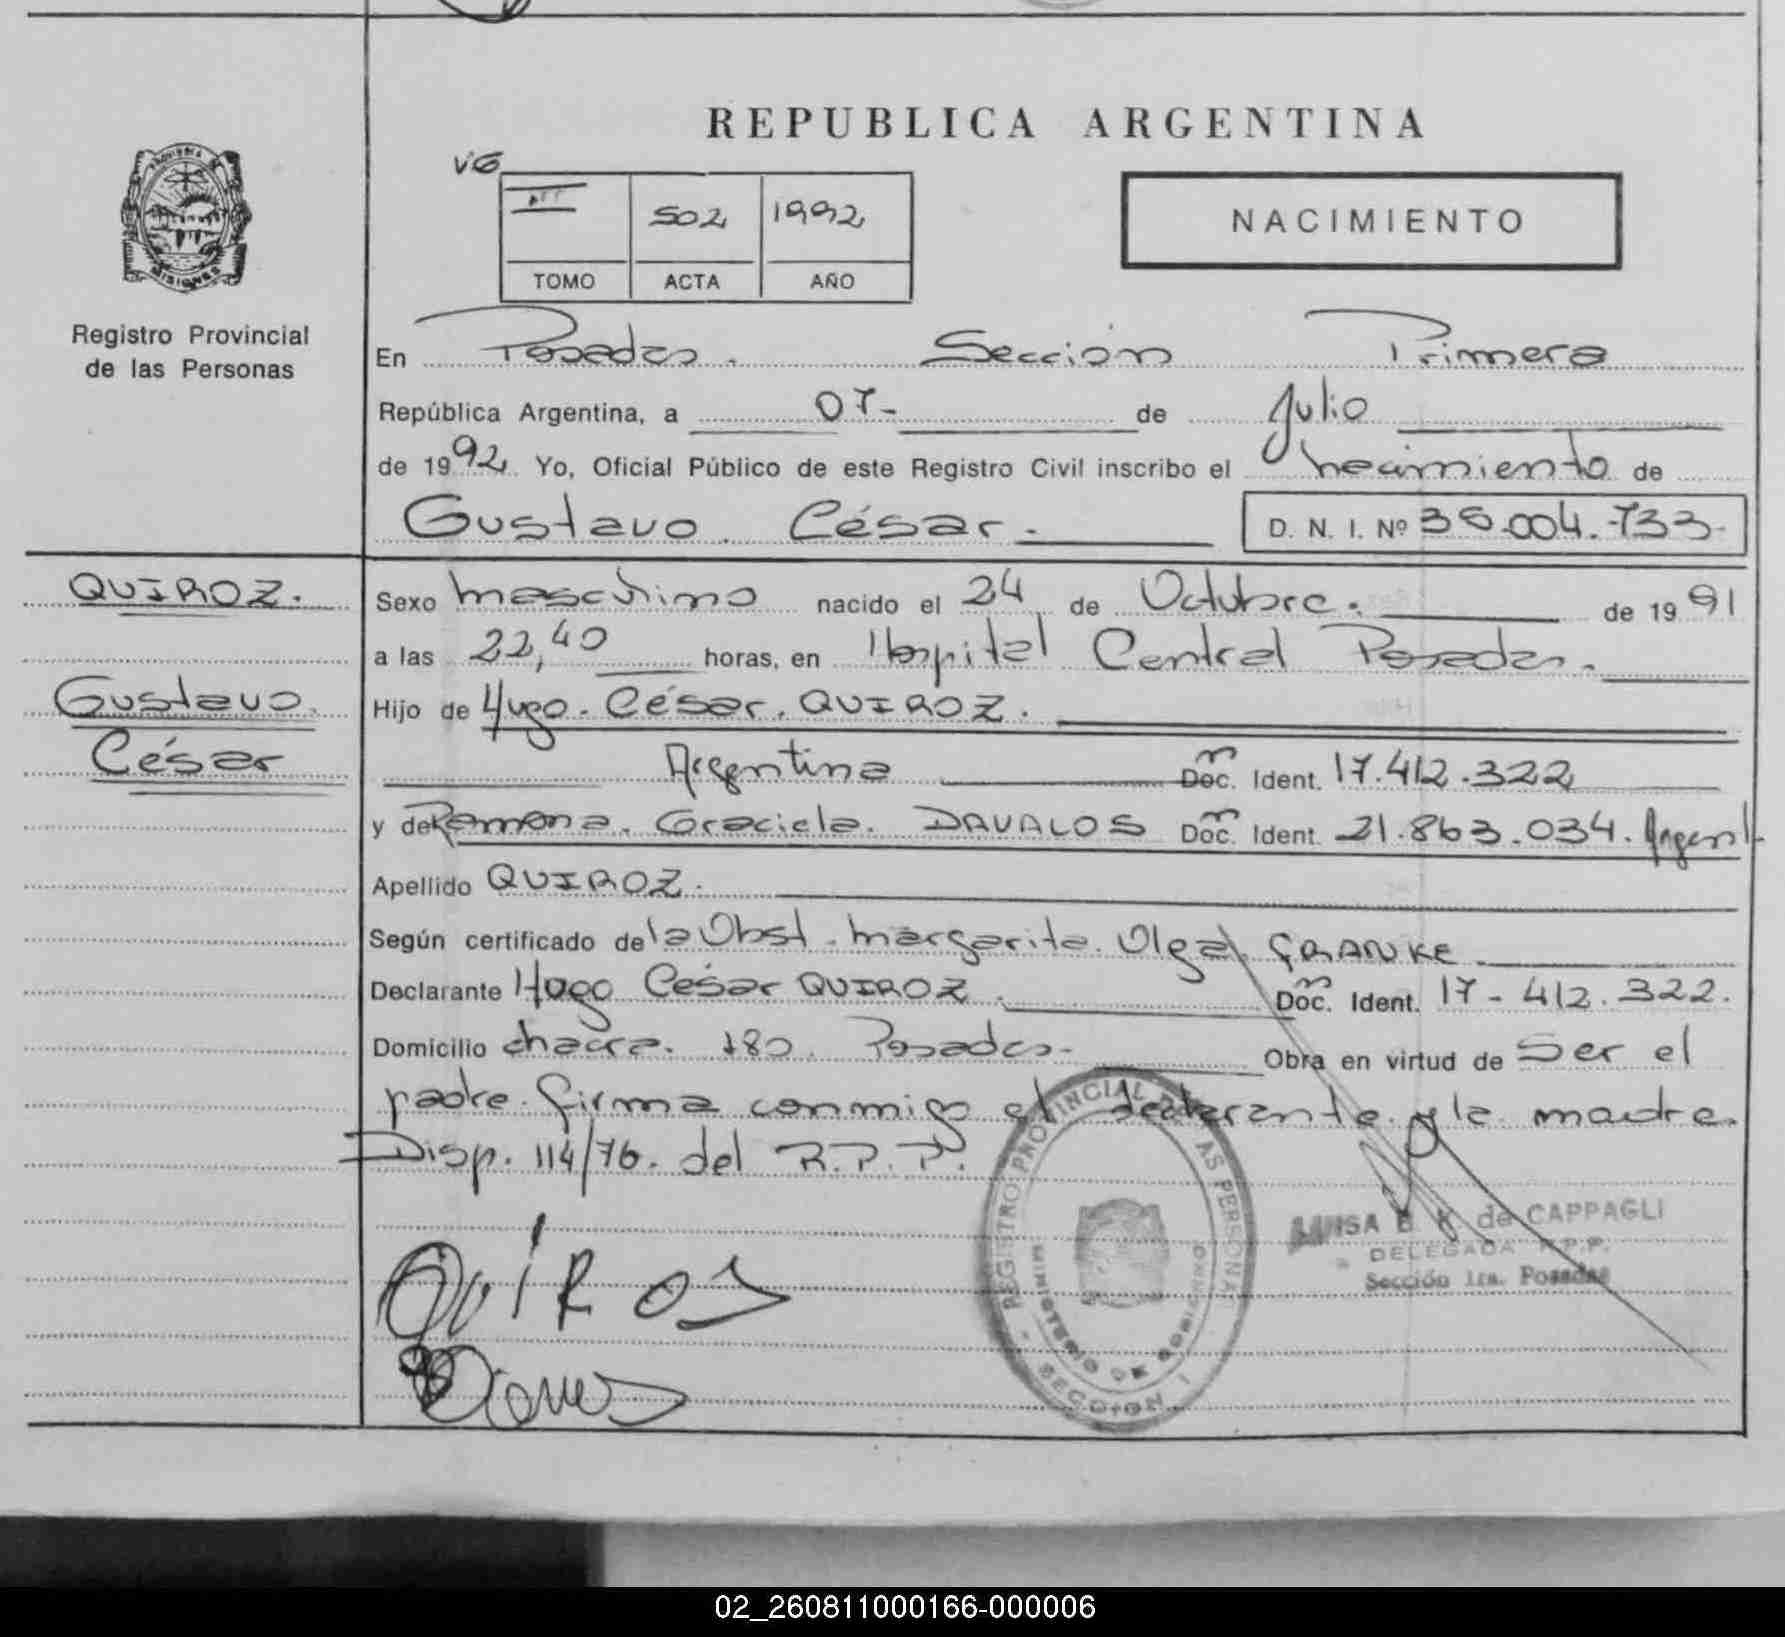 REPUBLICA ARGENTINA
VG
III 502 1992
TOMO ACTA AÑO
NACIMIENTO
PROVINCIA DE
MISIONES
Registro Provincial
de las Personas
En Posadas. Sección Primera
República Argentina, a 07- de Julio
de 1992 Yo, Oficial Público de este Registro Civil inscribo el nacimiento de
Gustavo César. D. N. I. Nº 36.004.733-
QUIROZ.
Gustavo
César
Sexo masculino nacido el 24 de Octubre. de 1991
a las 22,40 horas, en Hospital Central Posadas.
Hijo de Hugo. César. QUIROZ.
Argentina Doc. Ident. 17.412.322
y de Ramona. Graciela. DAVALOS Doc. Ident. 21.863.034. Argent
Apellido QUIROZ.
Según certificado de la Obst. Margarita. Olga FRANKE
Declarante Hugo César QUIROZ. Doc. Ident. 17-412.322.
Domicilio chacra. 180. Posadas- Obra en virtud de Ser el
padre. firma conmigo el declarante y la madre.
Disp. 114/76. del R.P.P.
REGISTRO PROVINCIAL DE LAS PERSONAS
MINISTERIO DE GOBIERNO
SECCION 1
de CAPPAGLI
DELEGADA R.P.P.
Sección 1ra. Posadas
QUIROZ
02_260811000166-000006